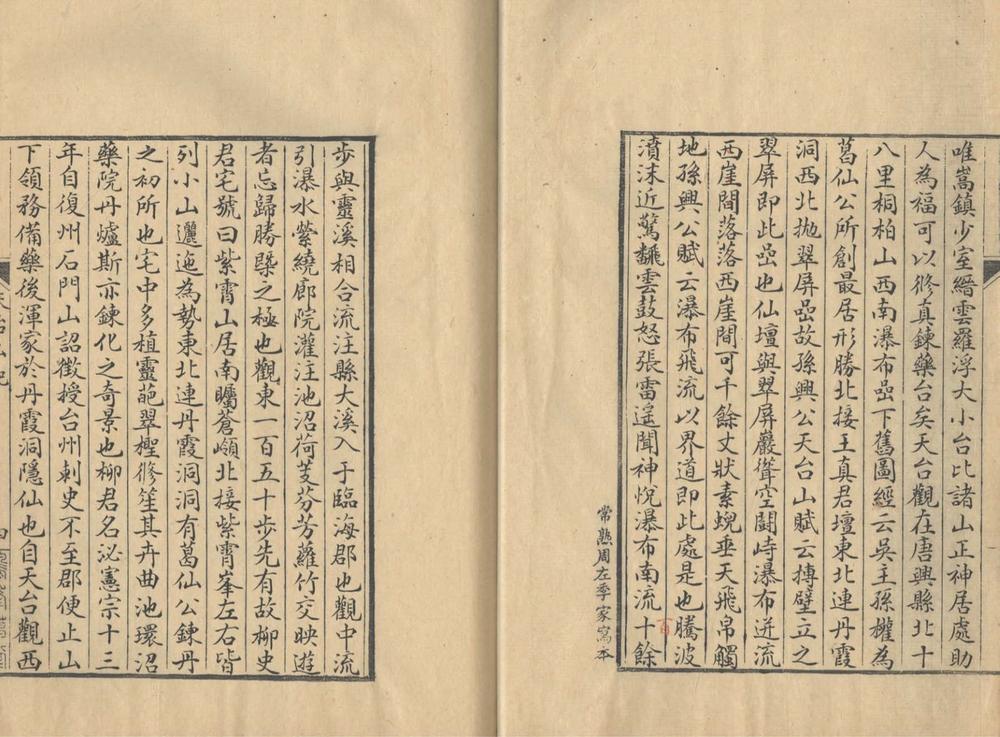 唯嵩鎮少室縉雲羅浮大小台比諸山正神居處助
人為福可以修真鍊藥台矣天台觀在唐興縣北十
八里桐柏山西南瀑布嵒下舊圖經云吳主孫權為
葛仙公所創最居形勝北接王真君壇東北連丹霞
洞西北抛翠屏嵒故孫興公天台山賦云摶壁立之
翠屏即此嵒也仙壇與翠屏巖聳空鬪峙瀑布迸流
西崖間落落西崖間可千餘丈狀素蜺垂天飛帛觸
地孫興公賦云瀑布飛流以界道即此處是也騰波
濆沫近驚飜雲鼓怒張雷遥聞神悅瀑布南流十餘
常熟周左季家寫本
步與靈溪相合流注縣大溪入于臨海郡也觀中流
引瀑水縈繞廊院灌注池沼荷芰芬芳蘿竹交映遊
者忘歸勝槩之極也觀東一百五十步先有故柳史
君宅號曰紫霄山居南矚蒼嶺北接紫霄峯左右皆
列小山邐迤為勢東北連丹霞洞洞有葛仙公鍊丹
之初所也宅中多植靈葩翠檉修笙其卉曲池環沼
藥院丹爐斯亦鍊化之奇景也柳君名泌憲宗十三
年自復州石門山詔徵授台州刺史不至郡便止山
下領務備藥後渾家於丹霞洞隱仙也自天台觀西